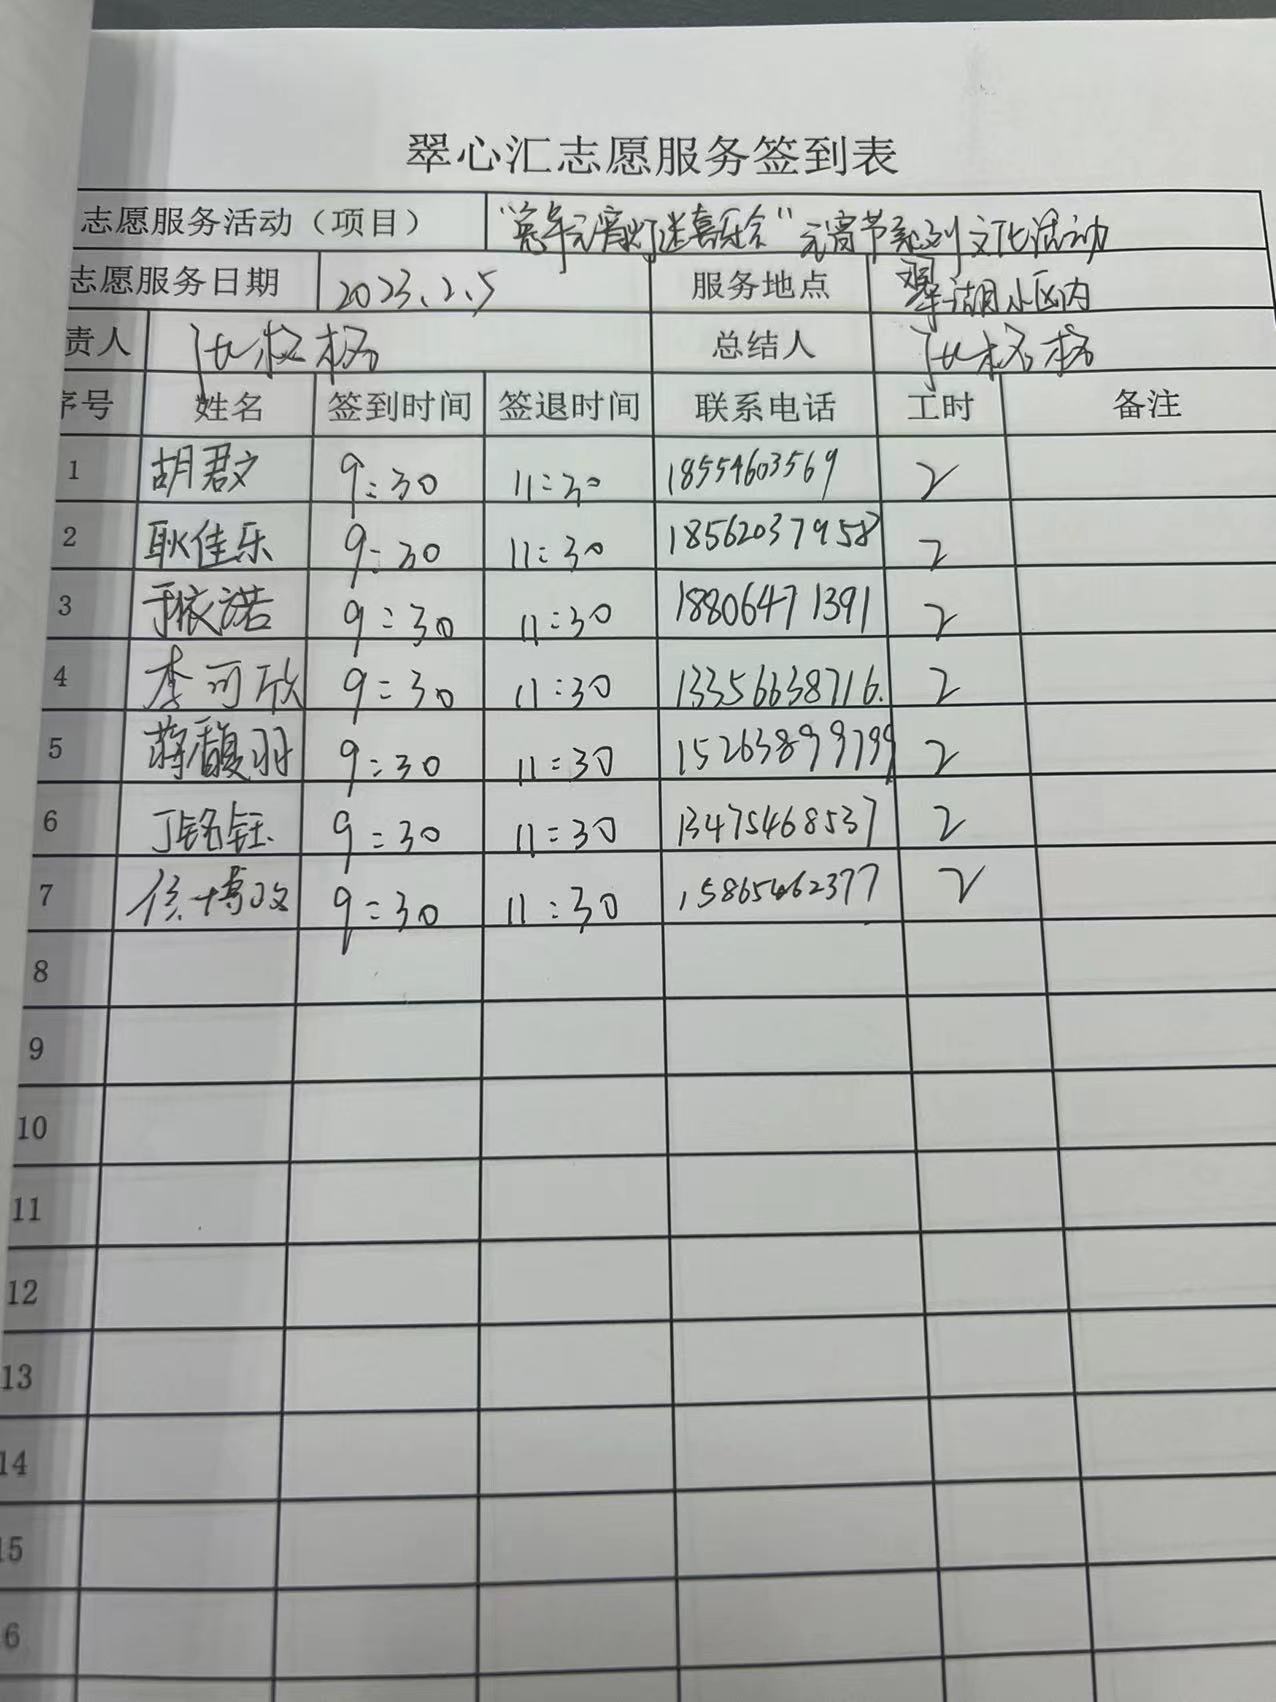 翠心汇志愿服务签到表
志愿服务活动（项目） “ 元宵灯迷喜乐会”元宵节系列文化活动
志愿服务日期 2023.2.5 服务地点 翠湖小区内
责人 张格格 总结人 张格格
序号 姓名 签到时间 签退时间 联系电话 工时 备注
1 胡君文 9:30 11:30 18554603569 2
2 耿佳乐 9:30 11:30 18562037958 2
3 于依诺 9:30 11:30 18806471391 2
4 李可欣 9:30 11:30 13356638716. 2
5 蒋馥羽 9:30 11:30 15263899799 2
6 丁铭钰 9:30 11:30 13475468537 2
7 侯博 9:30 11:30 15865462377 2
8
9
10
11
12
13
14
15
6